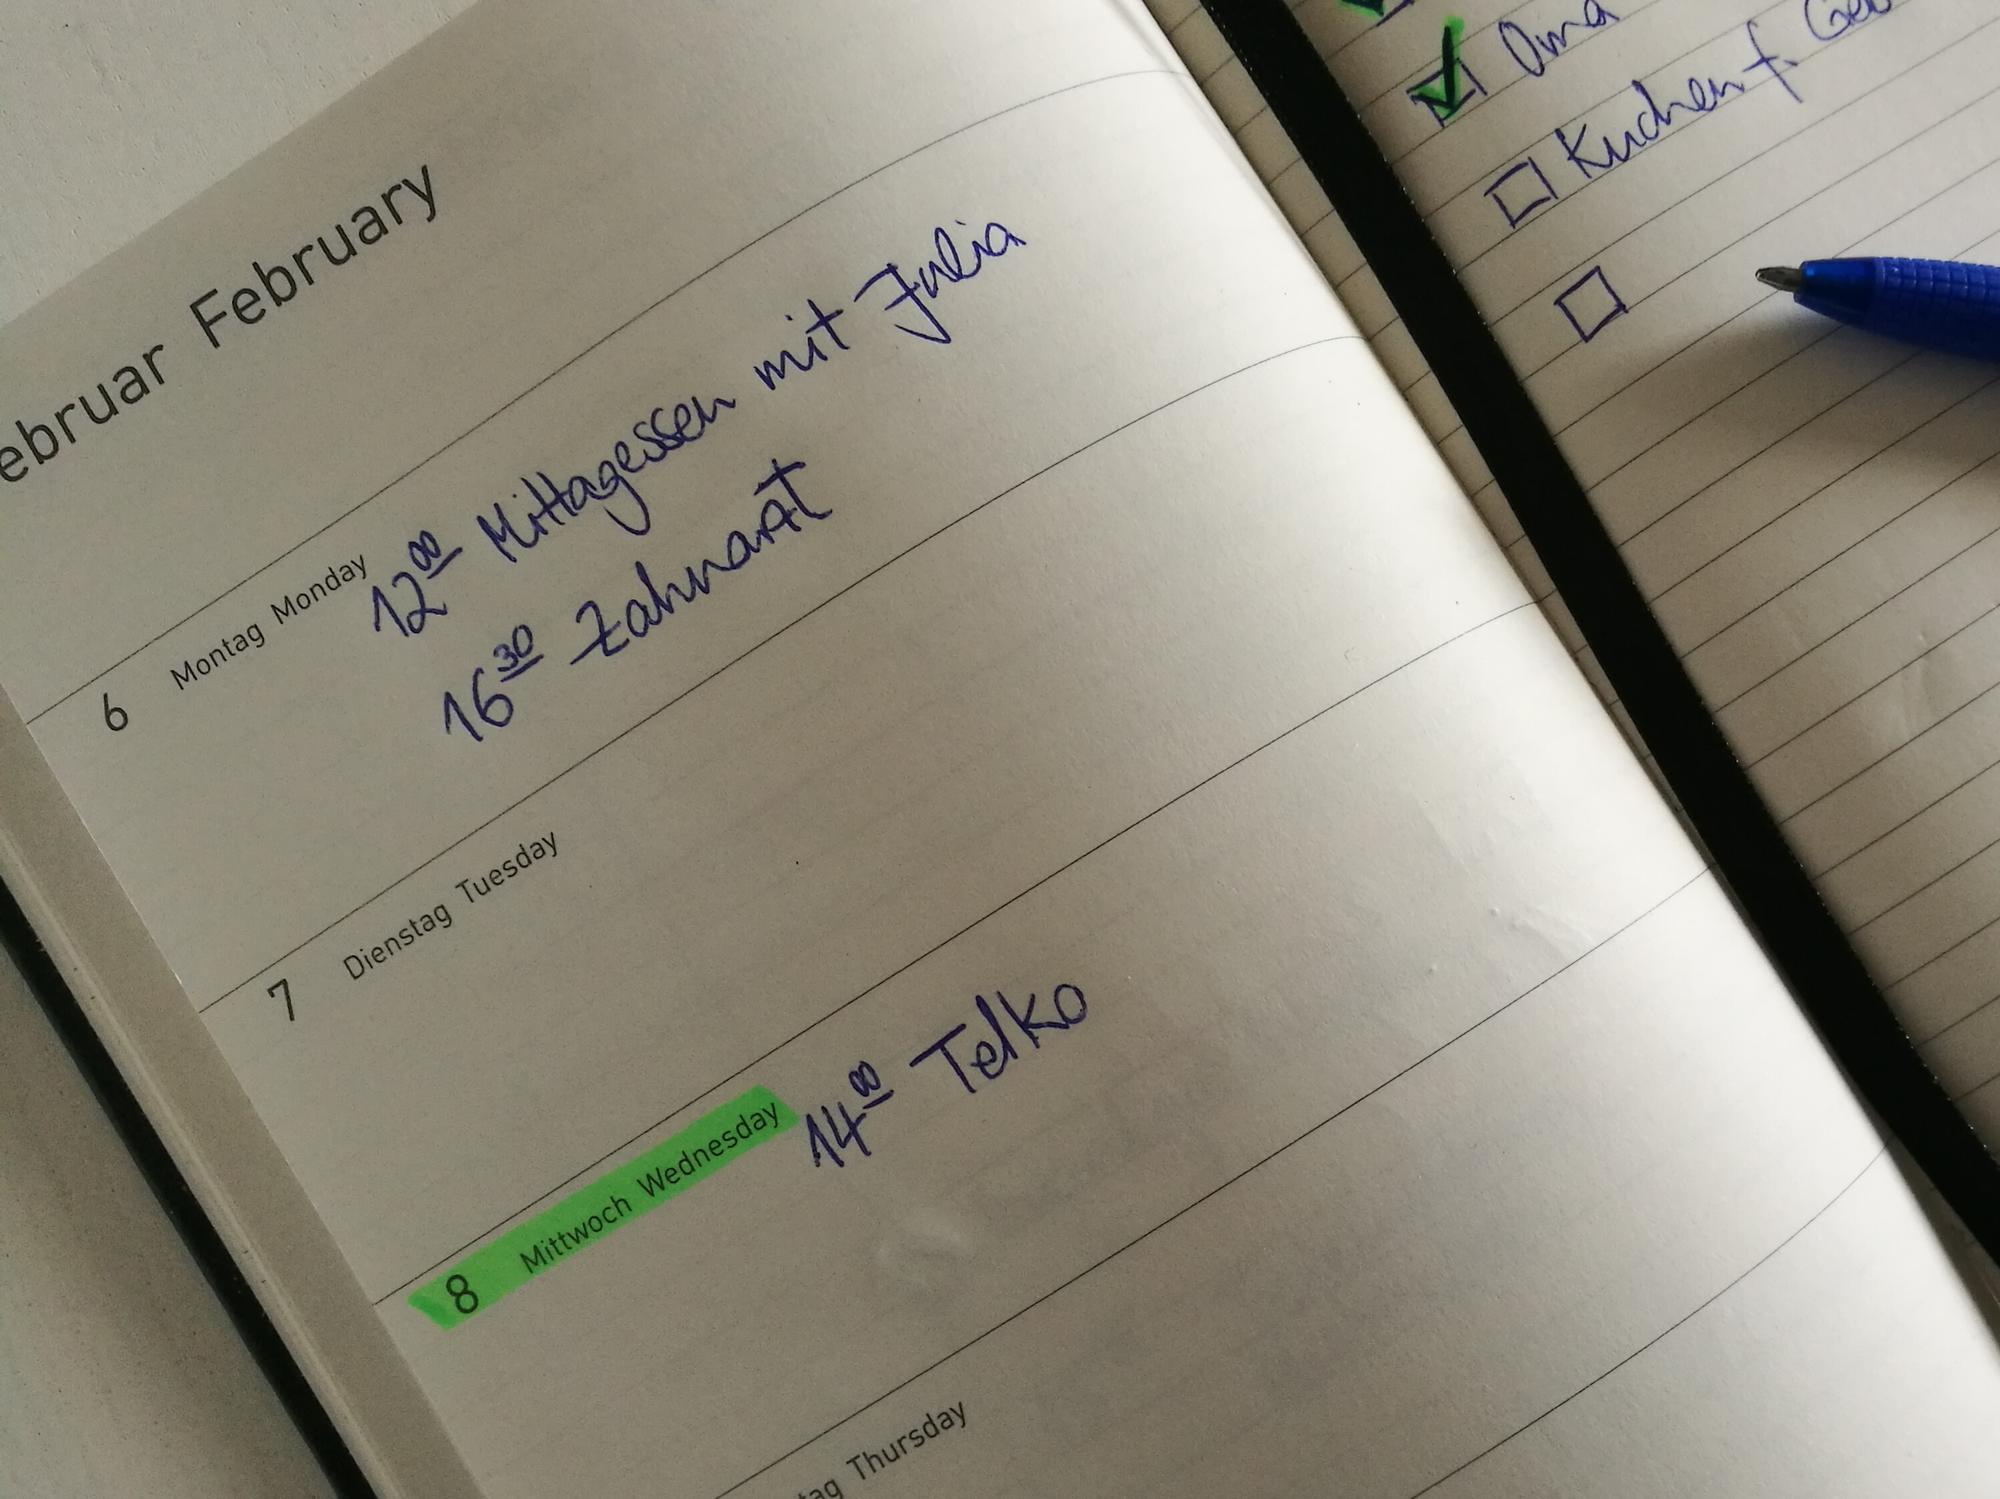 February
6 Montag Monday
12⁰⁰ Mittagessen mit Julia
16³⁰ Zahnarzt
7 Dienstag Tuesday
8 Mittwoch Wednesday
14⁰⁰ Telko
Thursday
Oma
Kuchen f.